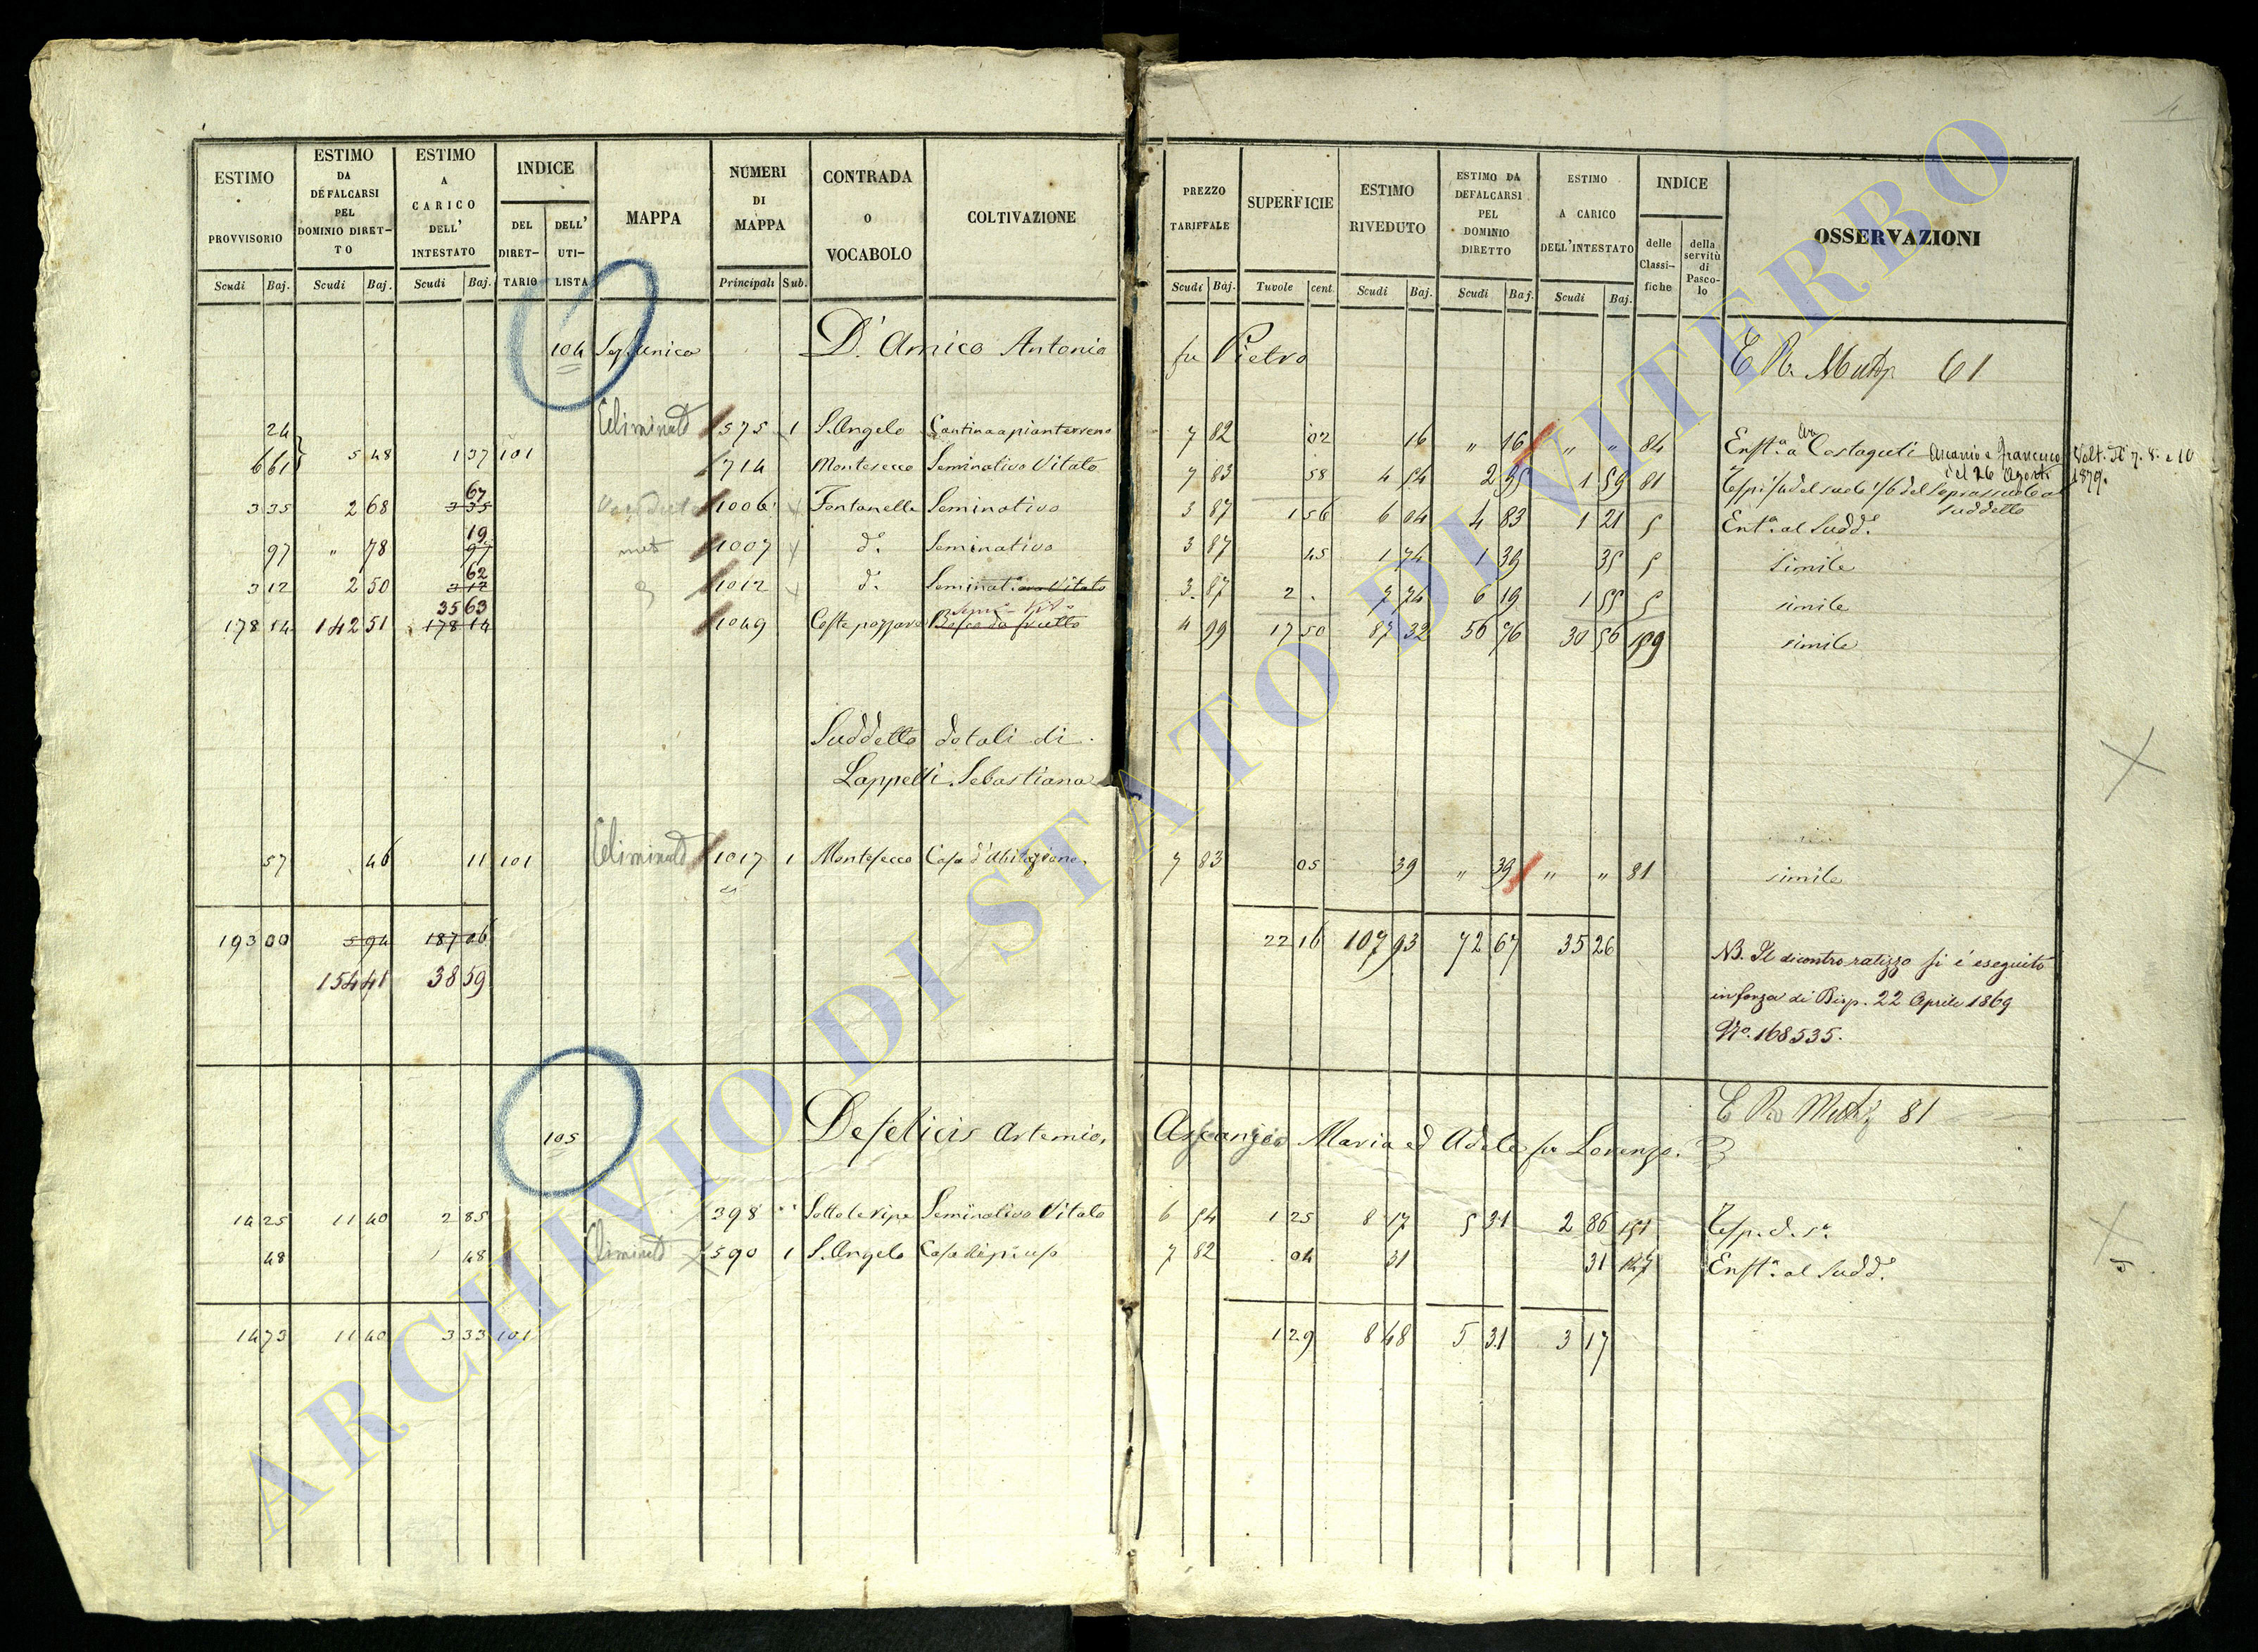 ESTIMO PROVVISORIO Scudi Baj.
ESTIMO DA DEFALCARSI PEL DOMINIO DIRETTO Scudi Baj.
ESTIMO A CARICO DELL' INTESTATO Scudi Baj.
INDICE DEL DIRETTARIO DELL' UTILISTA
MAPPA
NUMERI DI MAPPA Principali Sub.
CONTRADA O VOCABOLO
COLTIVAZIONE
PREZZO TARIFFALE Scudi Baj.
SUPERFICIE Tavole cent.
ESTIMO RIVEDUTO Scudi Baj.
ESTIMO DA DEFALCARSI PEL DOMINIO DIRETTO Scudi Baj.
ESTIMO A CARICO DELL'INTESTATO Scudi Baj.
INDICE delle Classifiche della servitù di Pascolo
OSSERVAZIONI
104 Sez. Unica D'Amico Antonio fu Pietro 61
24 Eliminato 575 1 S. Angelo Cantina a pianterreno 7 82 02 16 " 16 " " 84 Enft.a a Costaguti Ascanio e Francesco Volt. Nº 7. 8. e 10
661 5 48 1 37 101 714 Montesecco Seminativo Vitato 7 83 58 4 54 2 95 1 59 81 del 26 Agosto 1879.
suddetto
3 35 2 68 67 3 35 1006 Fontanelle Seminativo 3 87 1 56 6 04 4 83 1 21 5 Ent.a al Sudd.o
97 " 78 19 97 1007 d.o Seminativo 3 87 45 1 74 1 39 35 5 simile
3 12 2 50 62 3 12 1012 d.o Seminat.o Vitato 3 87 2 . 7 74 6 19 1 55 5 simile
178 14 142 51 35 63 178 14 1049 Costa pozzara Bosco da frutto 4 99 17 50 87 32 56 76 30 56 159 simile
Suddetto dotali di
Lappelli Sebastiana
57 46 11 101 Eliminato 1017 1 Montesecco Casa d'abitazione 7 83 05 39 " 39 " " 81 simile
193 00 5 94 187 06 22 16 107 93 72 67 35 26
154 41 38 59
NB. Il dicontro ratizzo si è eseguito
in forza di Disp. 22 Aprile 1869
Nº. 168535.
81
105 Defelicis Artemio, Ascanzio Maria ed Adele fu Lorenzo.
14 25 11 40 2 85 398 Sotto le ripe Seminativo Vitato 6 54 1 25 8 17 5 31 2 86 151
48 48 Eliminato 590 1 S. Angelo Casa di pr. uso 7 82 04 31 31 147 Enft.a al Sudd.o
14 73 11 40 3 33 101 1 29 8 48 5 31 3 17
ARCHIVIO DI STATO DI VITERBO